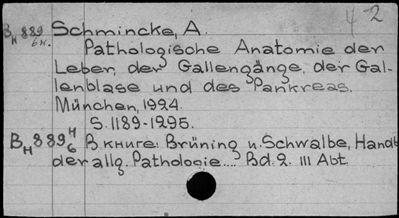 4-2
Вн 889 6н. Schmincke, A.
Pathologische Anatomie der
Leber, der Gallengänge, der Gal-
lenblase und des Pankreas.
München, 1924.
S. 1189-1295.
Вн 889 4/6 В книге: Brüning u. Schwalbe, Handb
der allg. Pathologie.... Bd. 2. III Abt.